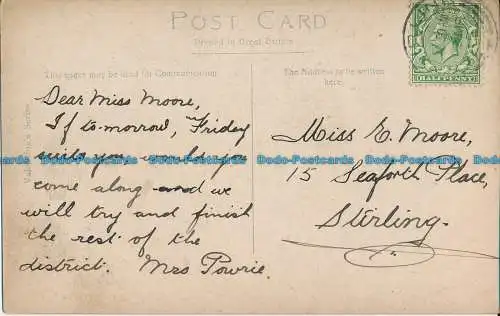 POST CARD
Printed in Great Britain
This space may be used for Communication
The Address to be written
here.
HALFPENNY
Dear Miss Moore,
If to-morrow, Friday
suits you would you
come along and we
will try and finish
the rest of the
district. Mrs Powrie.
Miss E. Moore,
15 Seaforth Place,
Stirling.
Dodo-Postcards Dodo-Postcards Dodo-Postcards Dodo-Postcards